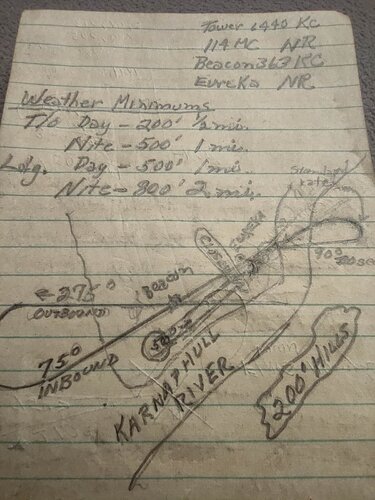 Tower 6440 KC
114 MC NR
Beacon 363 KC
Eureka NR
Weather Minimums
T/O Day - 200' 1/2 mi.
Nite - 500' 1 mi.
Ldg. Day - 500' 1 mi.
Nite - 800' 2 mi.
Standard rate
EUREKA
CLOSED
90°
BEACON
← 275°
OUTBOUND
75°
INBOUND
KARNAPHULL
RIVER
200' HILLS